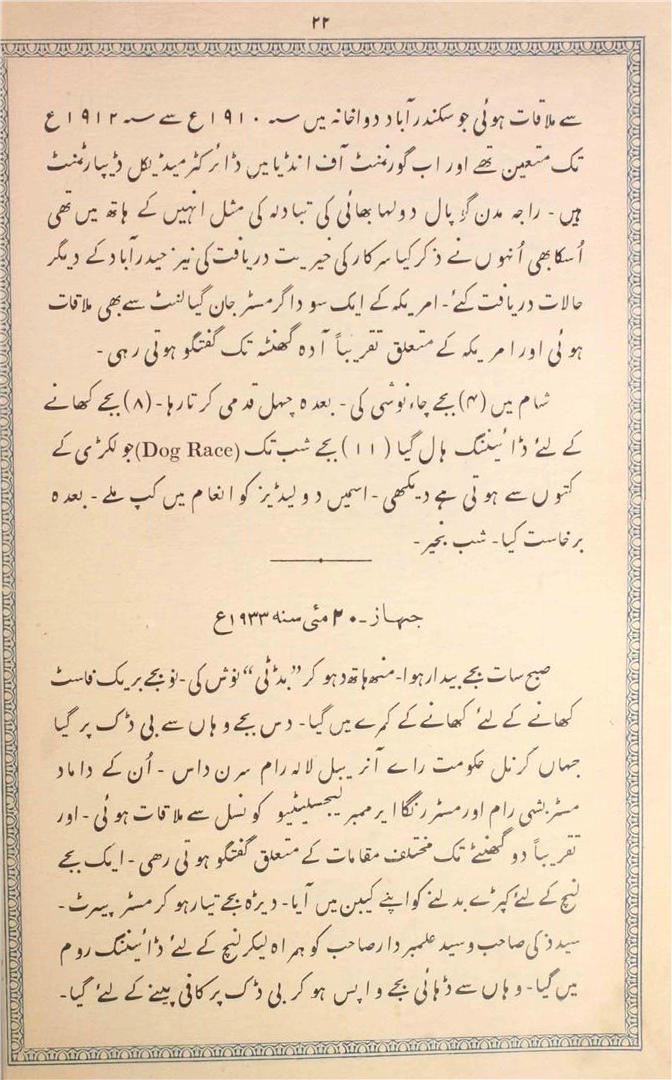 ۲۲
سے ملاقات ہوئی جو سکندرآباد دواخانہ میں سہ ۱۹۱۰ع سے سہ ۱۹۱۲ع
تک متعین تھے اور اب گورنمنٹ آف انڈیا میں ڈائرکٹر میڈیکل ڈیپارٹمنٹ
ہیں - راجہ مدن گوپال دولہا بھائی کی تبادلہ کی مثل انہیں کے ہاتھ میں تھی
اُسکا بھی اُنہوں نے ذکر کیا سرکار کی خیریت دریافت کی نیز حیدرآباد کے دیگر
حالات دریافت کئے- امریکہ کے ایک سوداگر مسٹر جان گیا لنٹ سے بھی ملاقات
ہوئی اور امریکہ کے متعلق تقریباً آدہ گھنٹہ تک گفتگو ہوتی رہی -
شام میں (۴) بجے چاء نوشی کی - بعدہ چہل قدمی کرتا رہا - (۸) بجے کھانے
کے لئے ڈائیننگ ہال گیا (۱۱) بجے شب تک (Dog Race) جو لکڑی کے
کتوں سے ہوتی ہے دیکھی - اسمیں دو لیڈیز کو انعام میں کپ ملے - بعدہ
برخاست کیا - شب بخیر -
جہاز - ۲۰ مئی سنہ ۱۹۳۳ع
صبح سات بجے بیدار ہوا - منھ ہاتھ دہو کر ”بڈ ٹی“ نوش کی - نو بجے بریک فاسٹ
کھانے کے لئے کھانے کے کمرے میں گیا - دس بجے وہاں سے بی ڈک پر گیا
جہاں کرنل حکومت راے آنریبل لالہ رام سرن داس - اُن کے داماد
مسٹر بشی رام اور مسٹر رنگا ایر ممبر لیجسلیٹیو کونسل سے ملاقات ہوئی - اور
تقریباً دو گھنٹے تک مختلف مقامات کے متعلق گفتگو ہوتی رھی - ایک بجے
لنچ کے لئے کپڑے بدلنے کو اپنے کیبن میں آیا - دیڑہ بجے تیار ہو کر مسٹر پیرٹ -
سید ذکی صاحب و سید علمبردار صاحب کو ہمراہ لیکر لنچ کے لئے ڈائیننگ روم
میں گیا - وہاں سے ڈہائی بجے واپس ہو کر بی ڈک پر کافی پینے کے لئے گیا -